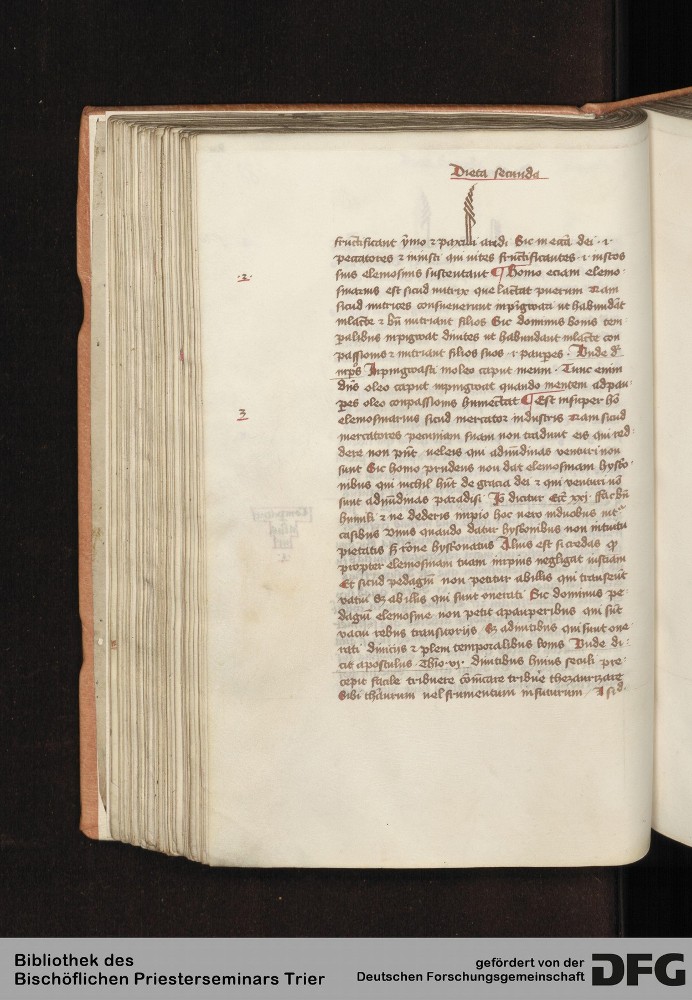 Dieta secunda
fructificant ymo et paxilli aridi Sic in ecca dei .i.
peccatores et iniusti qui vites fructificantes .i. iustos
suis elemosinis sustentant ¶ Homo eciam elemo
.2.
sinarius est sicud nutrix que lactat puerum Nam
sicud nutrices consueverunt inpigwari ut habundat
in lacte et bn nutriant filios Sic dominus bonis tem
palibus inpigwat divites ut habundant in lacte con
passionis et nutriant filios suos .i. paupes . Unde
Inpingwasti in oleo caput meum . Tunc enim
dns oleo caput inpingwat quando mentem ad pau
pes oleo conpassionis humectat ¶ Est insuper ho
3
elemosinarius sicud mercator industris Nam sicud
mercatores pecuniam suam non tradunt eis qui red
dere non pnt vel eis qui ad nundinas venturi non
sunt Sic homo prudens non dat elemosinam hystrio
nibus qui nichil hnt de gracia dei et qui venturi no
sunt ad nundinas paradisi Io dicitur Ecc xxj. ffac bn
humili et ne dederis impio hoc vero in duobus int
casibus Unus quando datur hystrionibus non intuitu
pietatis sed rone hystrionatus Alius est si credas
propter elemosinam tuam inpius negligat iusticiam
Et sicud pedagiu non petitur ab illis qui transeut
vacui Sed ab illis qui sunt onerati Sic dominus pe
dagiu elemosine non petit a pauperibus qui sut
vacui rebus transitorijs Sed a divitibus qui sunt one
rati divicijs et plem temporalibus bonis Unde di
cit apostulus Thio .vi. divitibus huius seculi pre
cepit facile tribuere comicare tribue thezaurizare
Sibi thaurum vel frumentum in futurum
Bibliothek des
Bischöflichen Priesterseminars Trier
gefördert von der
Deutschen Forschungsgemeinschaft
DFG